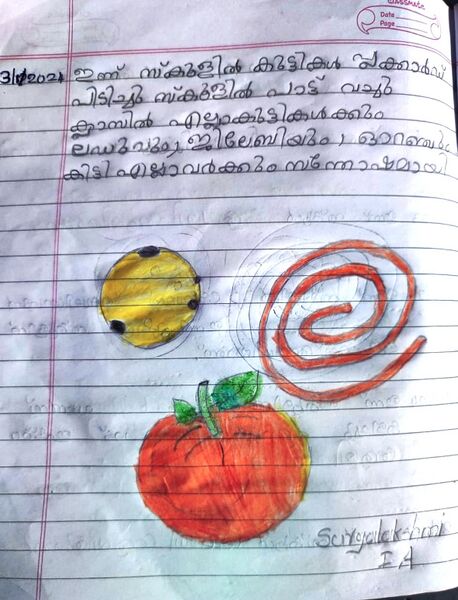 classmate
Date
Page
ഇന്ന് സ്കൂളിൽ കുട്ടികൾ പ്ലക്കാർഡ്
പിടിച്ചു സ്കൂളിൽ പാട്ട് വയ്ചു
ക്ലാസിൽ എല്ലാകുട്ടികൾക്കും
ലഡുവും, ജിലേബിയും, ഓറഞ്ചും
കിട്ടി എല്ലാവർക്കും സന്തോഷമായി
Suryalekshmi
I A